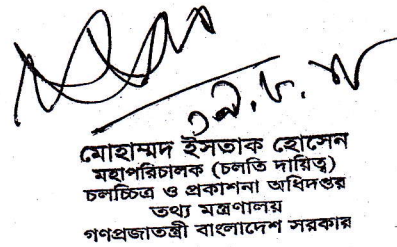 মোহাম্মদ ইসতাক হোসেন
মহাপরিচালক (চলতি দায়িত্ব)
চলচ্চিত্র ও প্রকাশনা অধিদপ্তর
তথ্য মন্ত্রণালয়
গণপ্রজাতন্ত্রী বাংলাদেশ সরকার